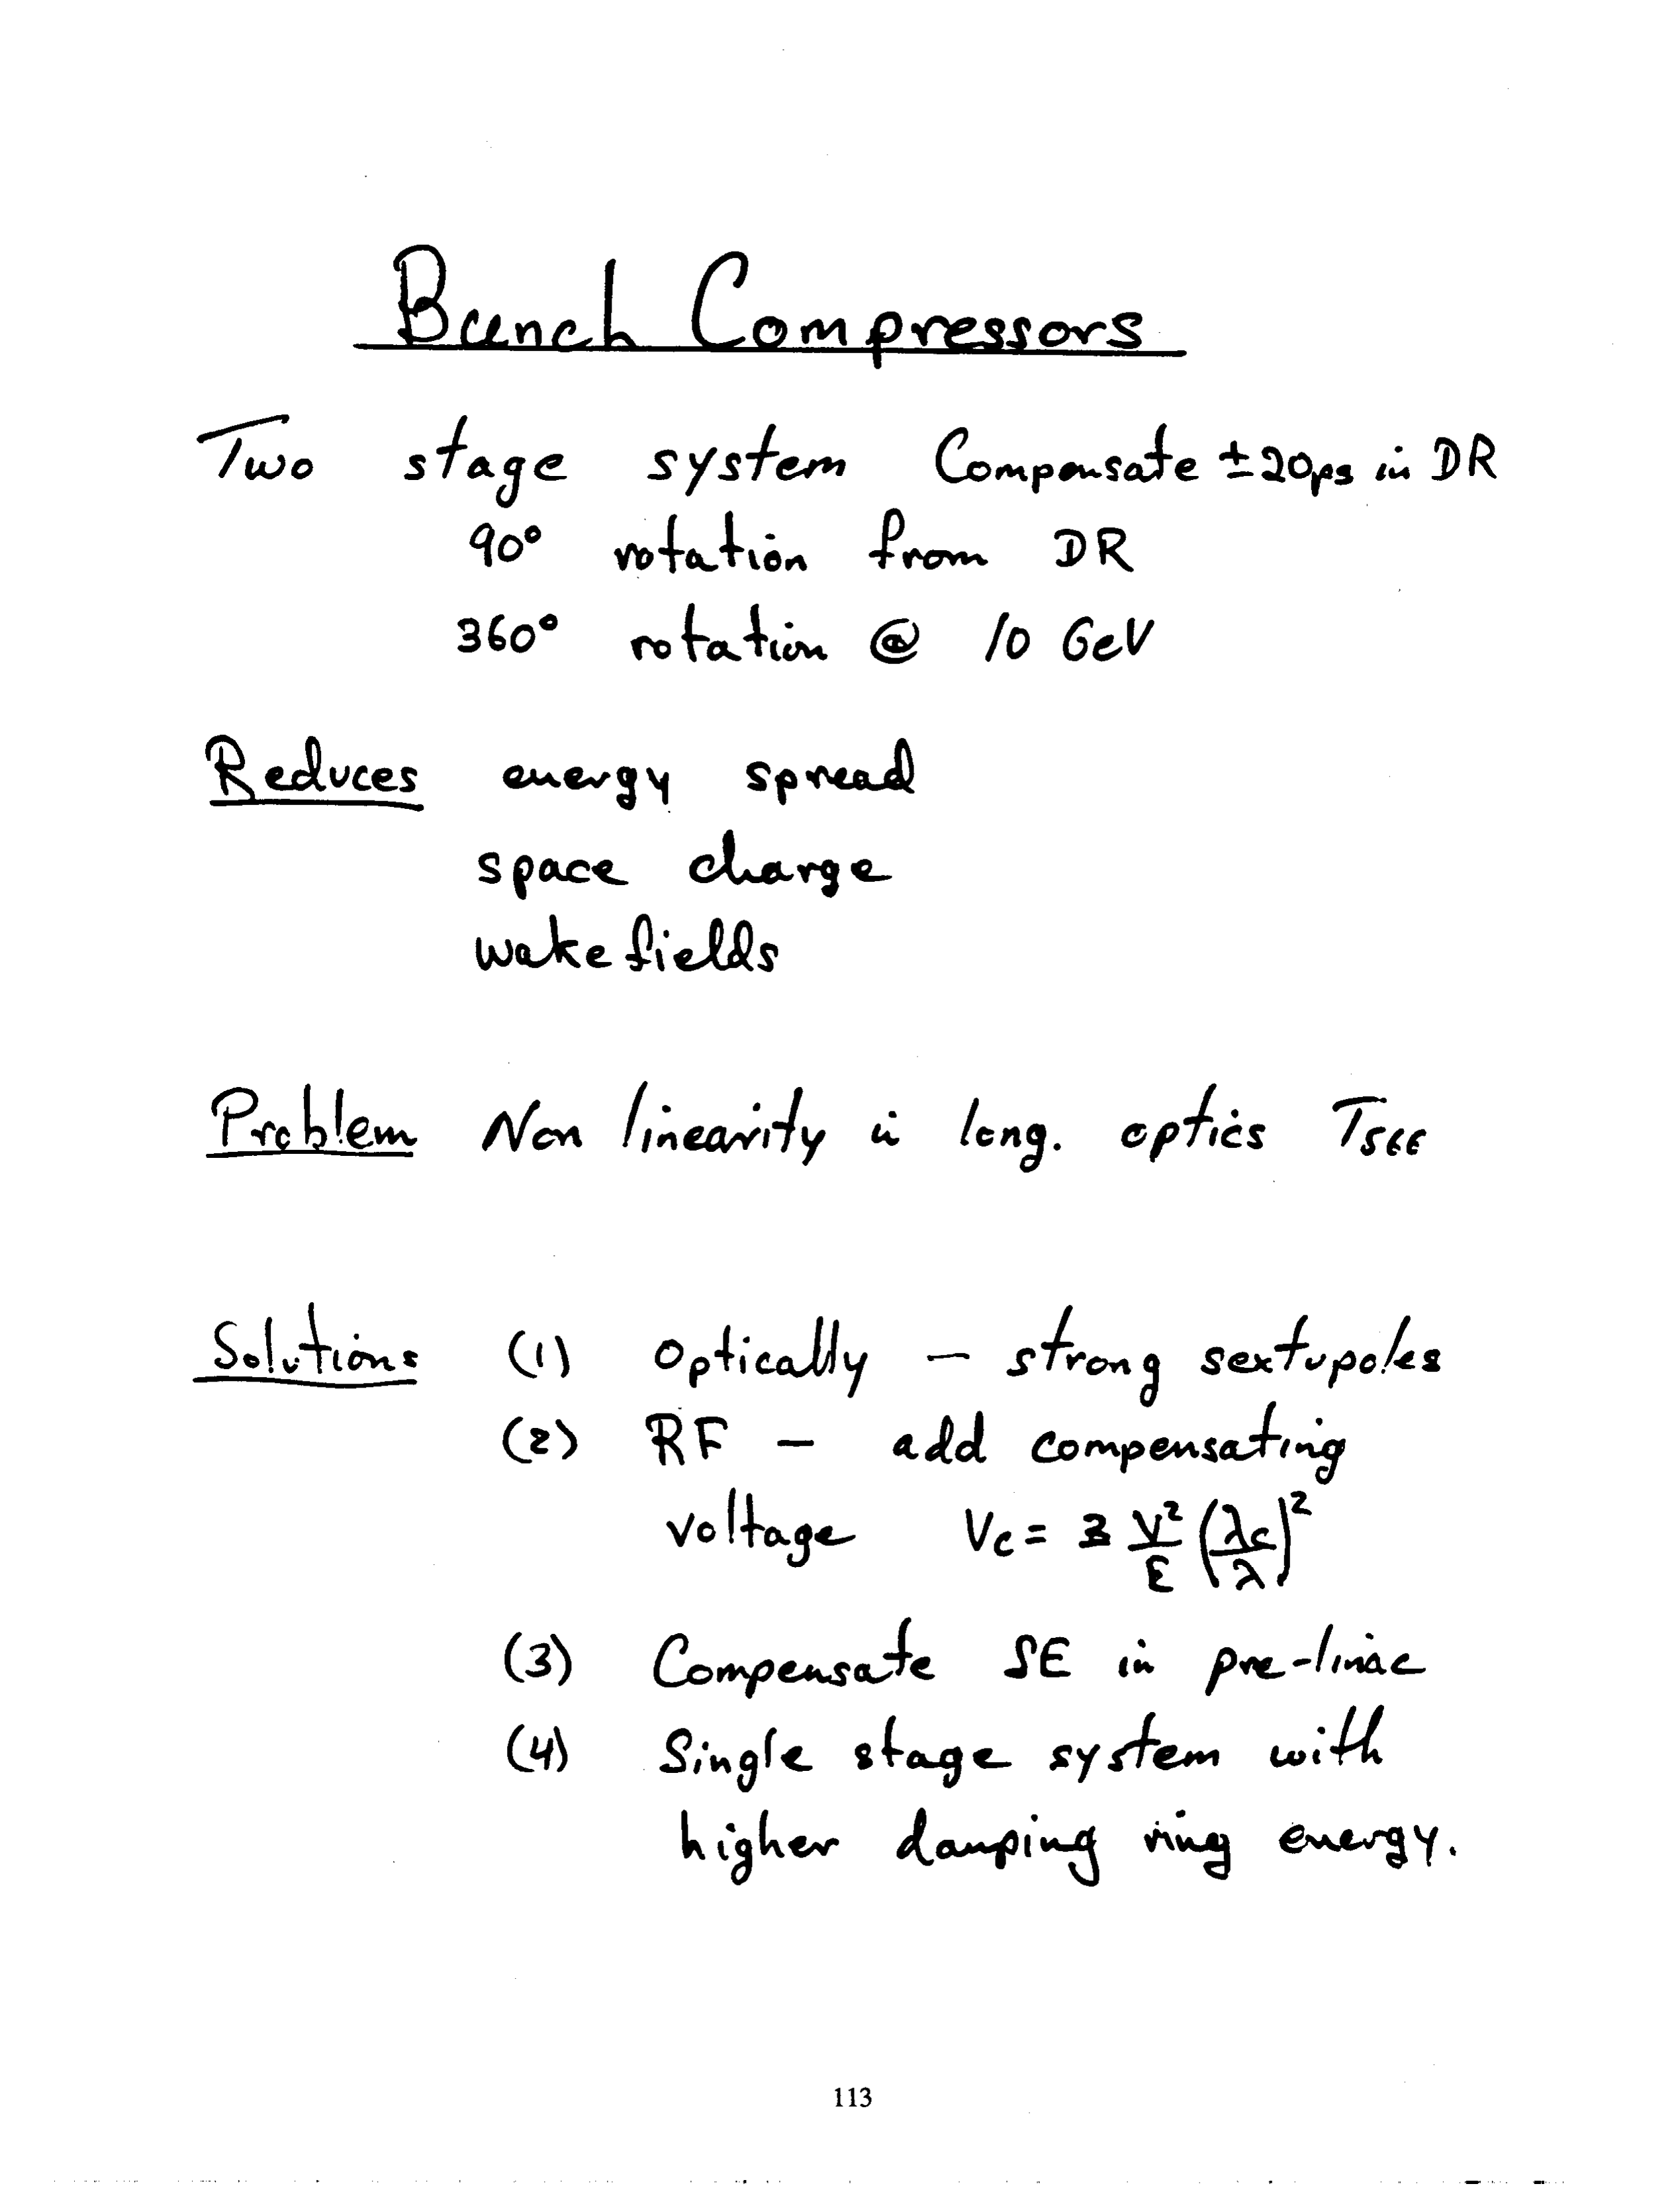 Bunch Compressors
Two stage system Compensate ±20ps in DR
90° rotation from DR
360° rotation @ 10 GeV
Reduces energy spread
space charge
wakefields
Problem Non linearity in long. optics T566
Solutions (1) Optically – strong sextupoles
(2) RF – add compensating
voltage Vc = 3 V²/E (λc/λ)²
(3) Compensate δE in pre-linac
(4) Single stage system with
higher damping ring energy.
113